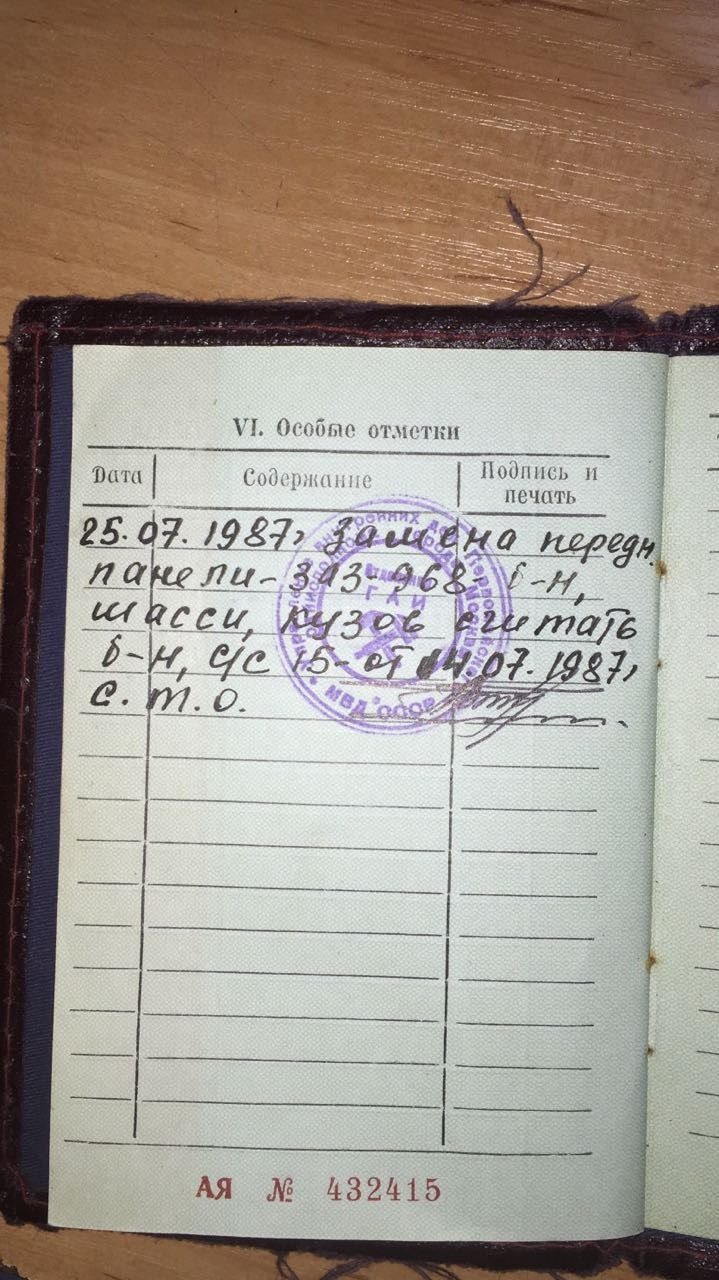 VI. Особые отметки
Дата Содержание Подпись и печать
25.07.1987г Замена передн.
панели-ЗАЗ-968- б-н,
шасси, кузов считать
б-н, с/с 15-от 14.07.1987г
С.Т.О.
внутренних дел
ГАИ
МВД СССР
АЯ № 432415